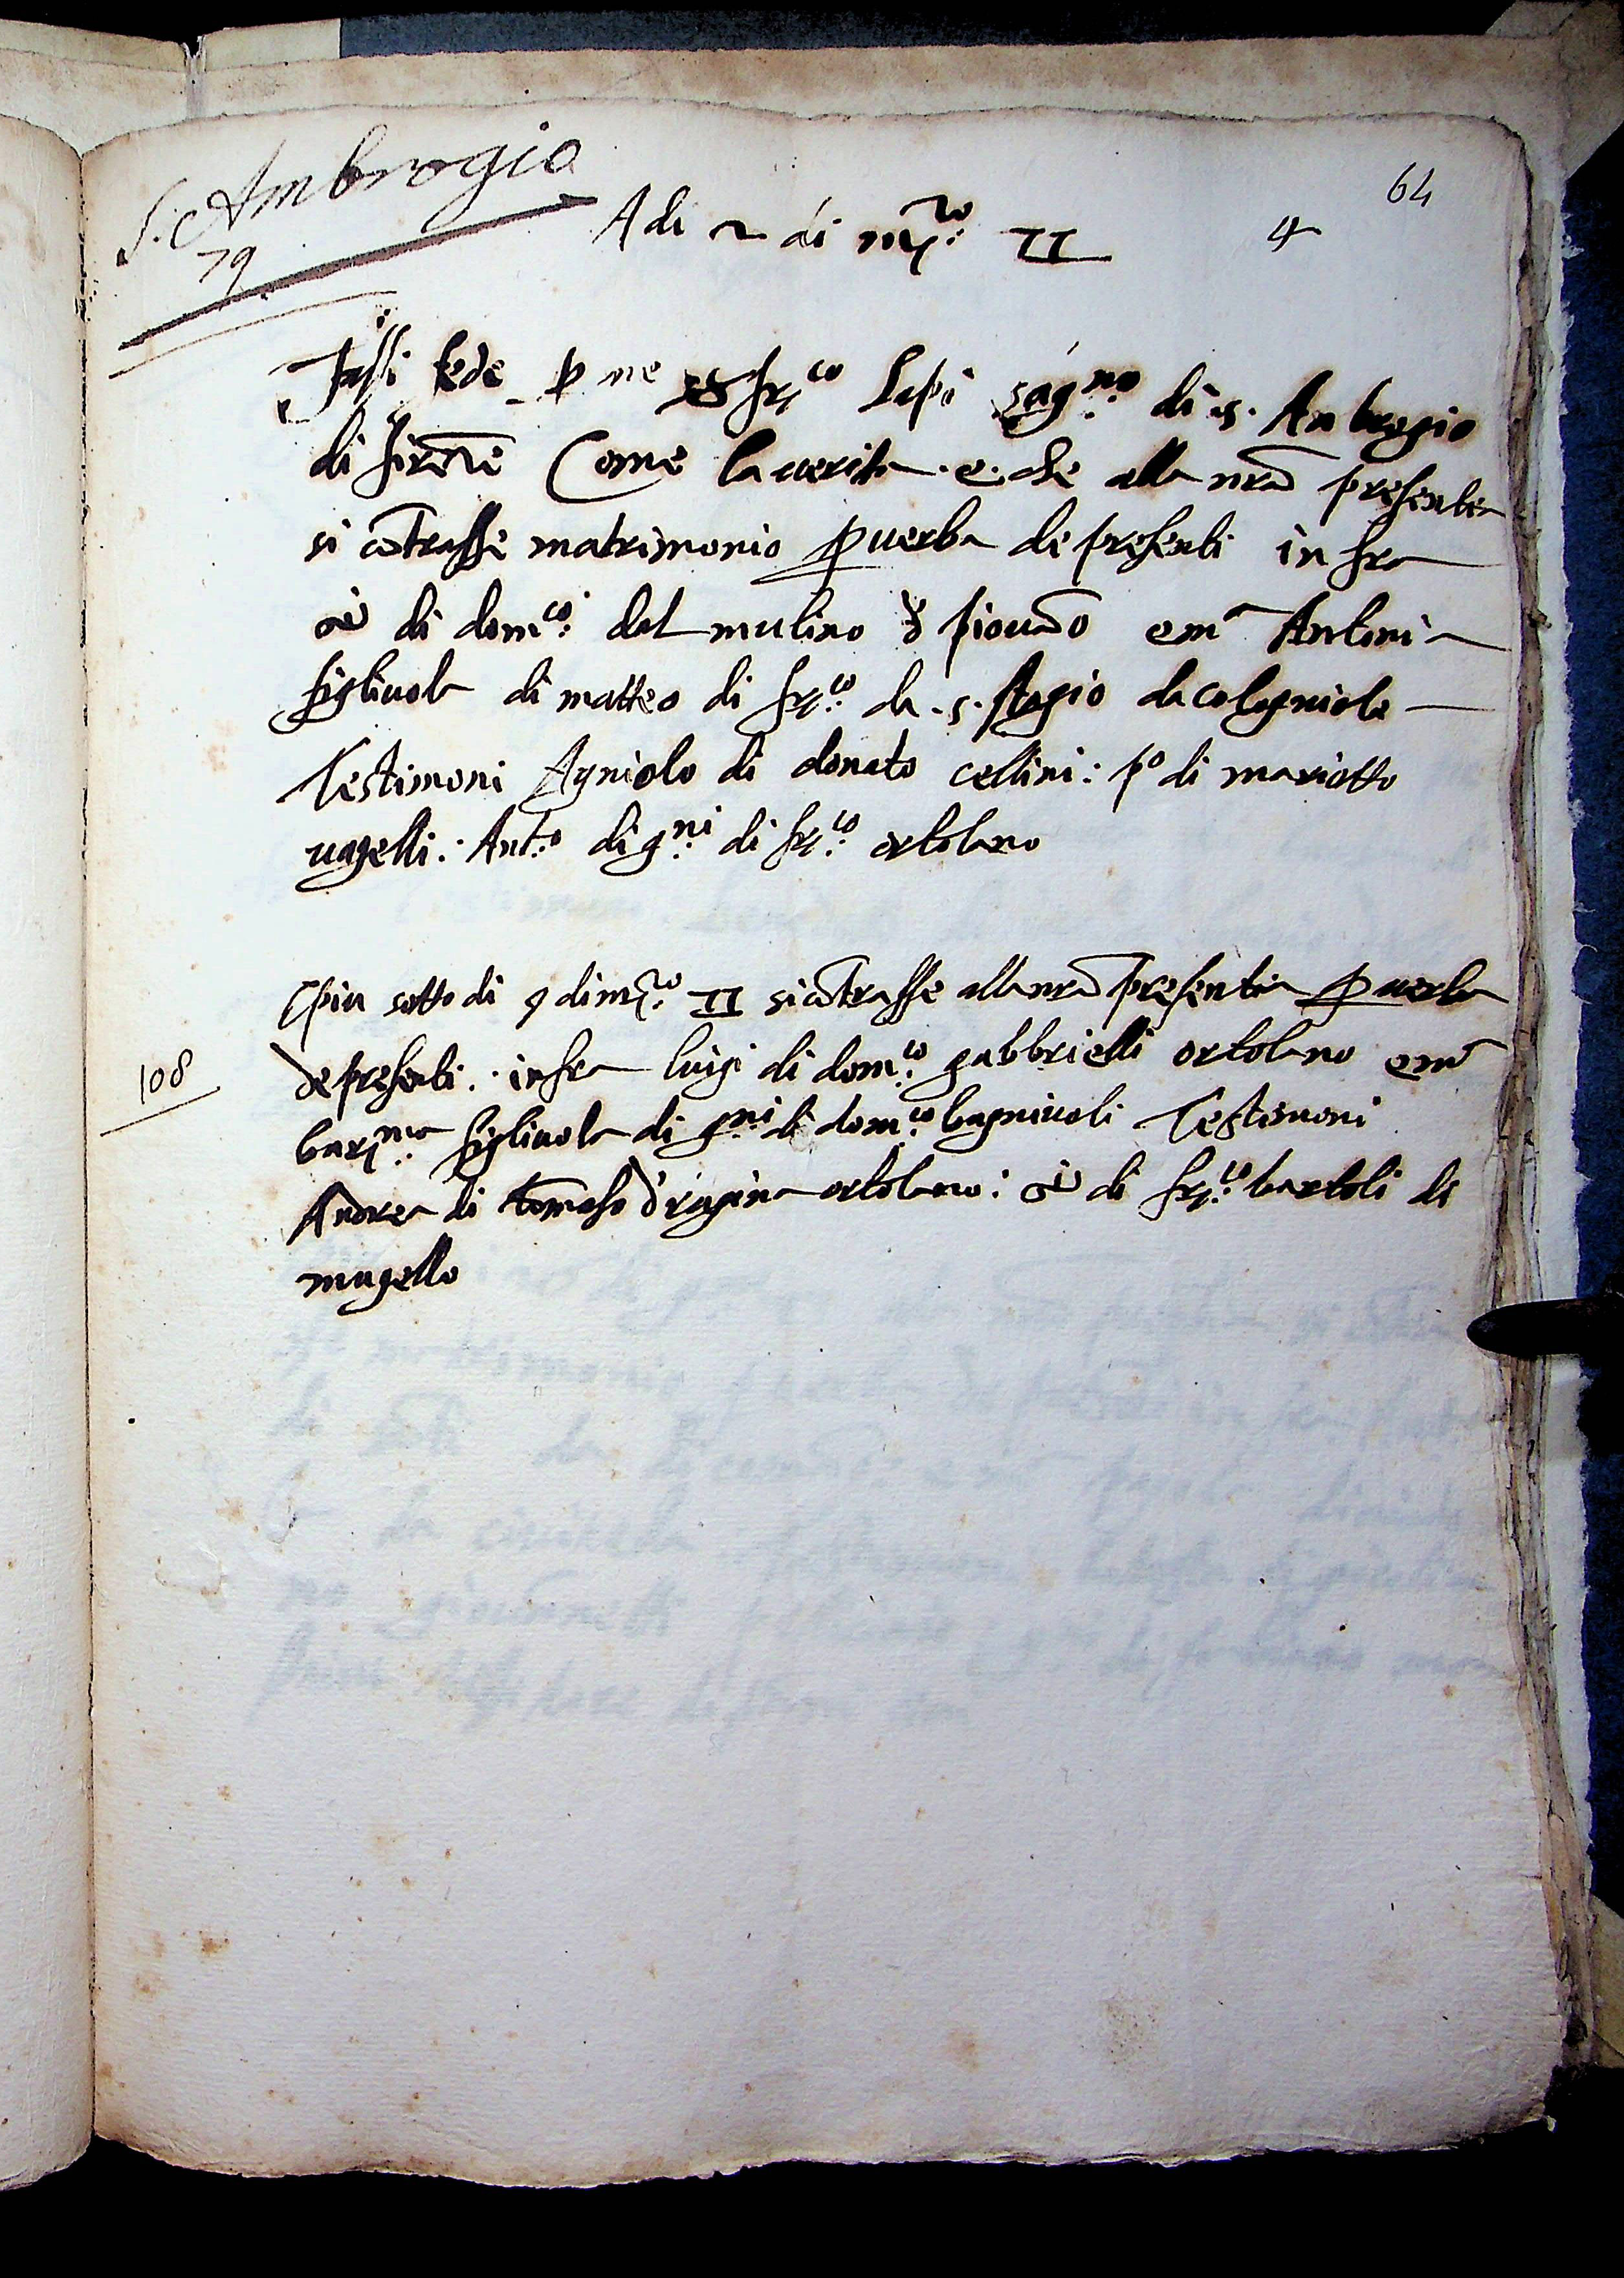 S. Ambrogio
79
64
A di 2 di mzo: II 4
Fassi fede p me frco Lapi sagno di .s. Anbrogio
di firēze Come la uerita .e. che alla nrā presentia
si cōtrasse matrimonio p uerba de presenti infra
di domco: dal mulino piouāo e ma Antonia
figliuola di matteo di frco: da .s. stagio da cologniola
Testimoni Agniolo di donato cellini: po di mariotto
uagelli: Anto: di gni: di frco: ortolano
E piu sotto di 9 di mzo: II si cōtrasse alla nrā presentia p uerba
108
de presenti infra luigi di domco: gabbrielli ortolano e ma
figliuola di gni: di domco: bagniuoli Testimoni
Andrea di tomaso ortolano: di frco: bartoli di
mugello